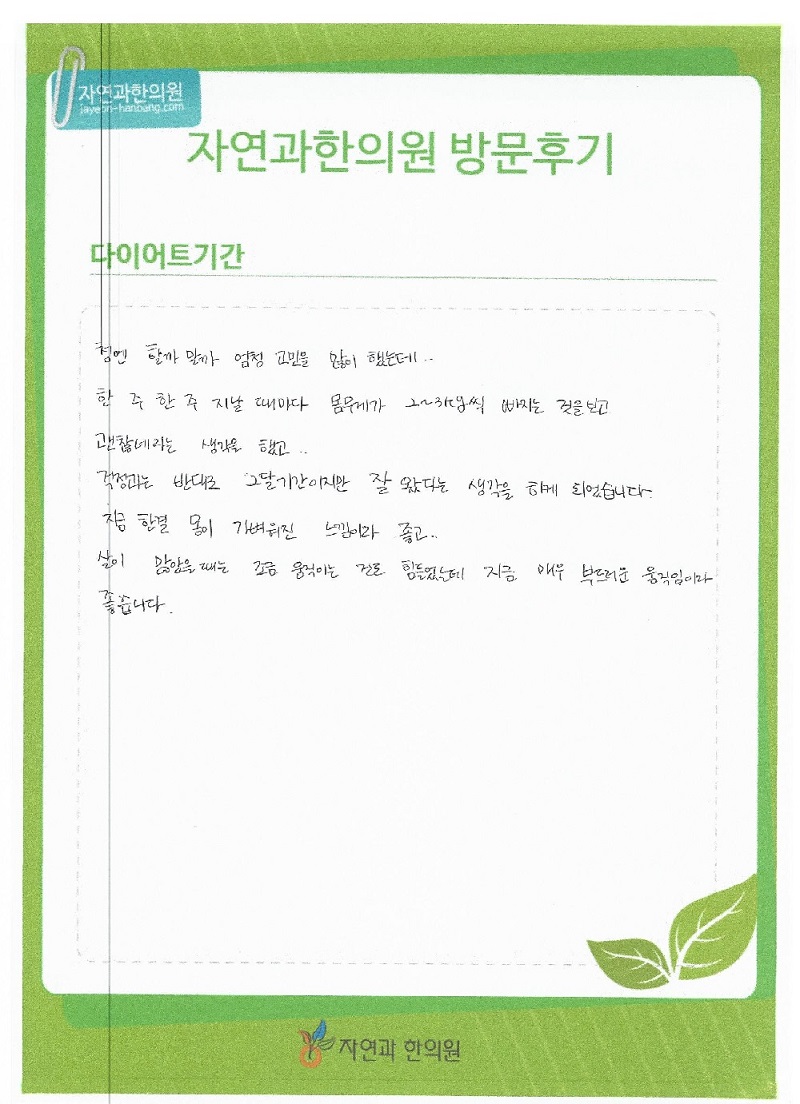 자연과한의원
jayeon-hanbang.com
자연과한의원 방문후기
다이어트기간
첨엔 할까 말까 엄청 고민을 많이 했는데..
한 주 한 주 지날 때마다 몸무게가 2~3kg씩 빠지는 것을 보고
괜찮네라는 생각을 했고..
걱정과는 반대로 2달기간이지만 잘 왔다는 생각을 하게 되었습니다.
지금 한결 몸이 가벼워진 느낌이라 좋고..
살이 많았을 때는 조금 움직이는 걸로 힘들었는데 지금 매우 부드러운 움직임이라
좋습니다.
자연과 한의원